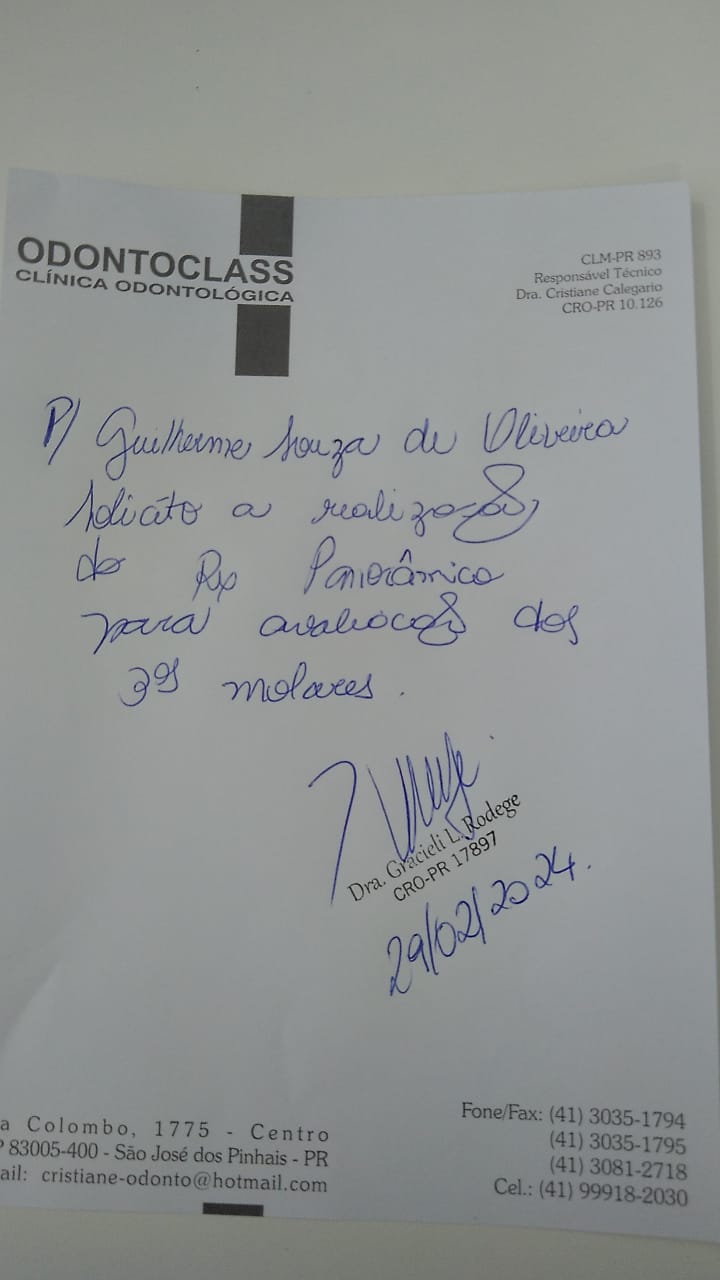 ODONTOCLASS
CLÍNICA ODONTOLÓGICA
CLM-PR 893
Responsável Técnico
Dra. Cristiane Calegario
CRO-PR 10.126
P/ Guilherme Souza de Oliveira
Solicito a realização
do Rx Panorâmico
para avaliação dos
3ºs molares.
Dra. Gracieli L. Rodege
CRO-PR 17897
29/02/2024.
a Colombo, 1775 - Centro
P 83005-400 - São José dos Pinhais - PR
ail: cristiane-odonto@hotmail.com
Fone/Fax: (41) 3035-1794
(41) 3035-1795
(41) 3081-2718
Cel.: (41) 99918-2030